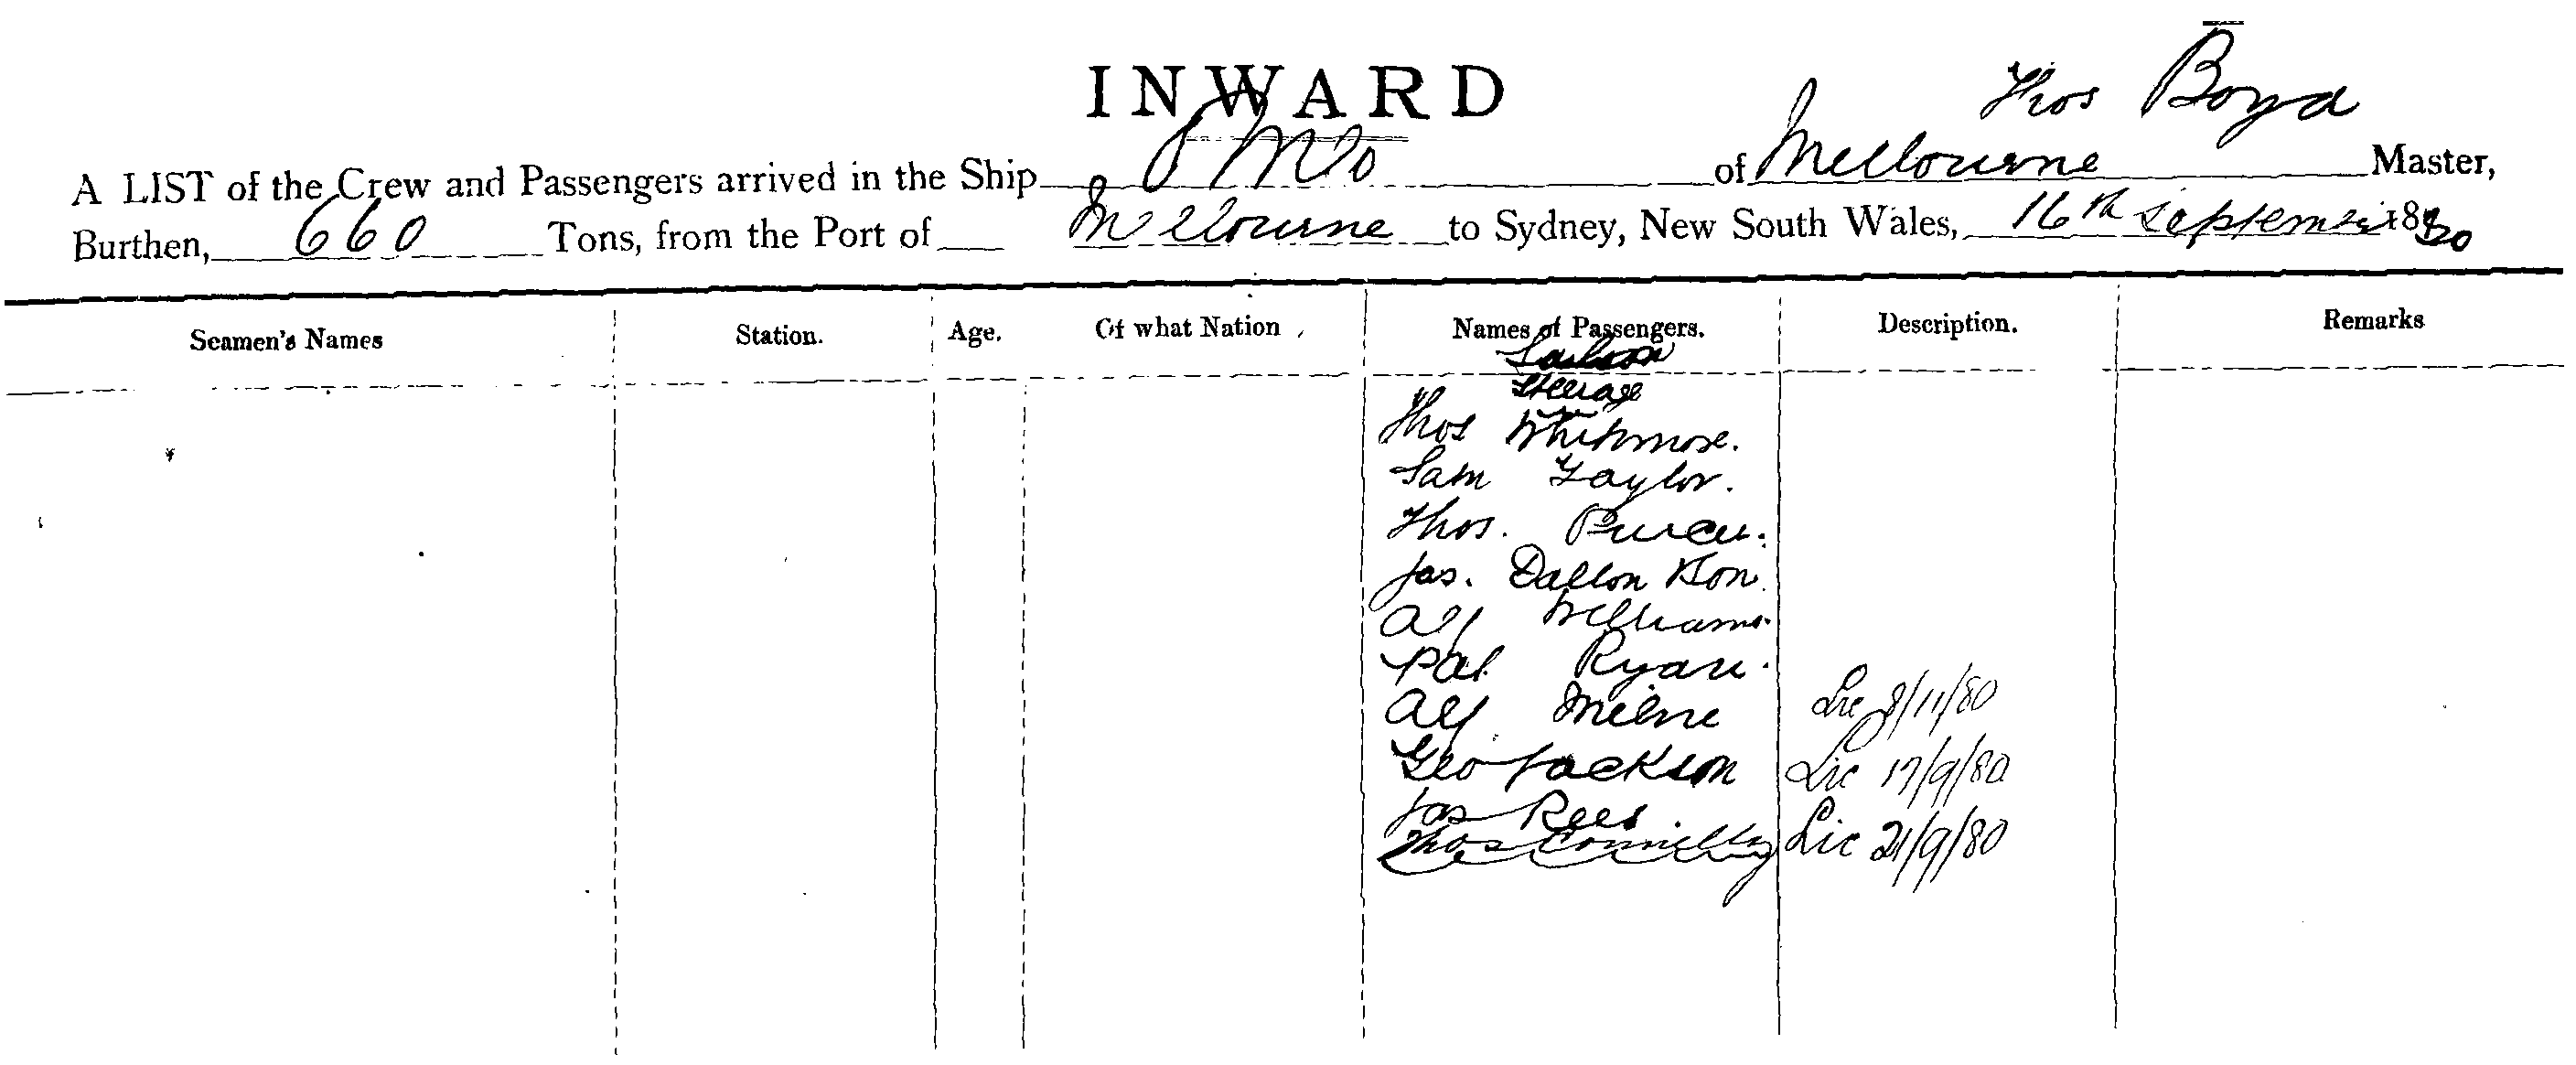 INWARD
Thos Boyd
A LIST of the Crew and Passengers arrived in the Ship of Melbourne Master,
Burthen, 660 Tons, from the Port of Melbourne to Sydney, New South Wales, 16th September 1880
Seamen's Names Station. Age. Of what Nation Names of Passengers. Description. Remarks
Steerage
Thos Whitmore.
Sam Taylor.
Thos. Purcell.
Jas. Dalton
Alf Williams.
Pat Ryan.
Alf Milne Lic 8/11/80
Geo Jackson Lic 17/9/80
Jas Rees.
Thos Connelly Lic 21/9/80